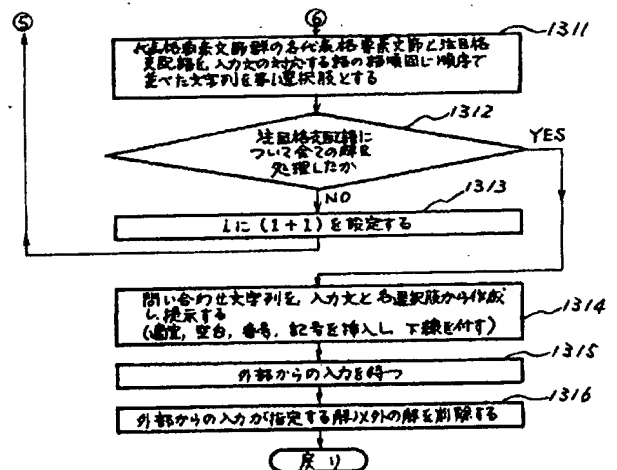 ⑤
⑥
1311
代表格要素文節群の各代表格要素文節と注目格
支配語を,入力文の対応する語の語順同じ順序で
並べた文字列を第i選択肢とする
1312
注目格支配語に
ついて全ての解を
処理したか
YES
NO
1313
iに(i+1)を設定する
1314
問い合わせ文字列を,入力文と各選択肢から作成
し,提示する
(適宜,空白,番号,記号を挿入し,下線を付す)
1315
外部からの入力を待つ
1316
外部からの入力が指定する解以外の解を削除する
戻り